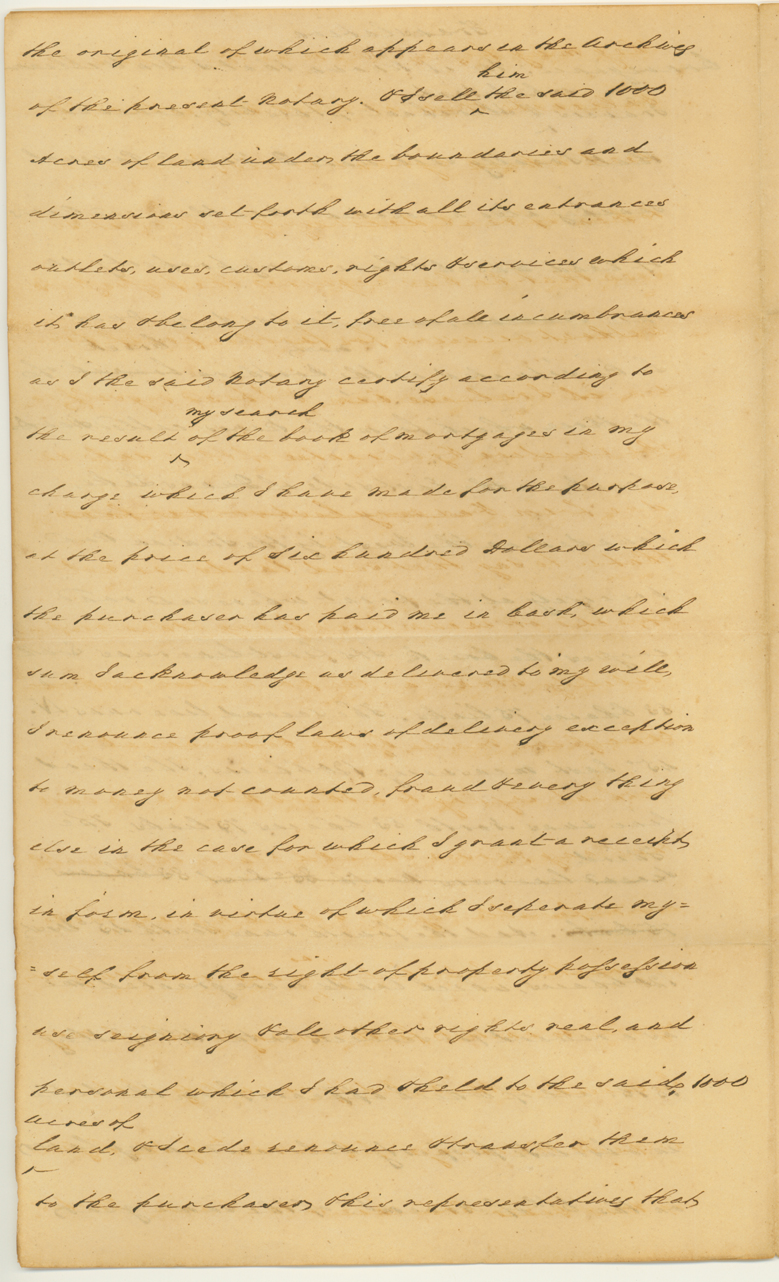 the original of which appears in the Archives
him
of the present Notary. & I sell ‸ the said 1000
Acres of land under the boundaries and
dimensions set forth with all its entrances
outlets, uses, customs, rights & services which
it has & belong to it, free of all incumbrances
as I the said Notary certify according to
my search
the result ‸ of the book of mortgages in my
charge which I have made for the purpose,
at the price of Six hundred Dollars which
the purchaser has paid me in Cash, which
sum I acknowledge as delivered to my will,
I renounce proof laws of delivery exception
to money not counted, fraud & every thing
else in the case for which I grant a receipt
in form, in virtue of which I seperate my=
=self from the right of property possession
use seigniory & all other rights real, and
personal which I had & held to the said, 1000
acres of
‸ land, & I cede renounce & transfer them
to the purchaser & his representatives that